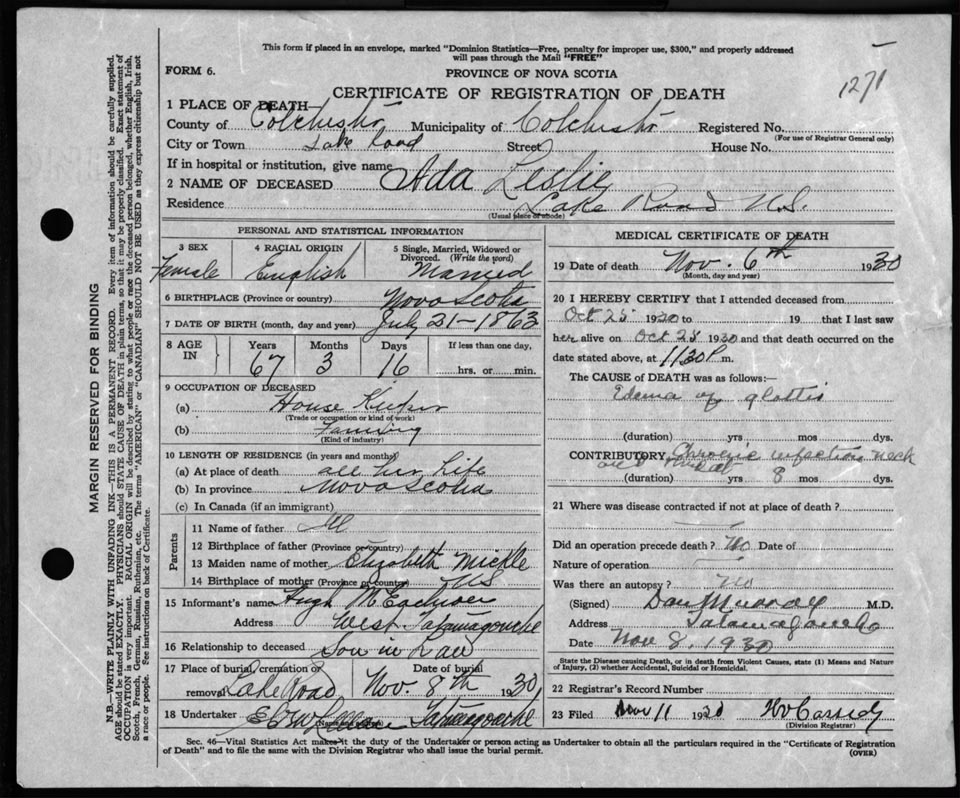 This form if placed in an envelope, marked "Dominion Statistics—Free, penalty for improper use, $300," and properly addressed
will pass through the Mail "FREE"
FORM 6.
PROVINCE OF NOVA SCOTIA
CERTIFICATE OF REGISTRATION OF DEATH
1271
1 PLACE OF DEATH—
County of Colchester Municipality of Colchester Registered No.
(For use of Registrar General only)
City or Town Lake Road Street House No.
If in hospital or institution, give name
2 NAME OF DECEASED Ada Leslie
Residence Lake Road N.S.
(Usual place of abode)
PERSONAL AND STATISTICAL INFORMATION
3 SEX 4 RACIAL ORIGIN 5 Single, Married, Widowed or Divorced. (Write the word)
Female English Married
6 BIRTHPLACE (Province or country) Nova Scotia
7 DATE OF BIRTH (month, day and year) July 21-1863
8 AGE IN Years Months Days If less than one day,
67 3 16 hrs. or min.
9 OCCUPATION OF DECEASED
(a) House Keeper
(Trade or occupation or kind of work)
(b) Farming
(Kind of industry)
10 LENGTH OF RESIDENCE (in years and months)
(a) At place of death all her life
(b) In province Nova Scotia
(c) In Canada (if an immigrant)
Parents
11 Name of father
12 Birthplace of father (Province or country)
13 Maiden name of mother Elizabeth Mickle
14 Birthplace of mother (Province or country) NS
15 Informant's name Hugh McEachren
Address West Tatamagouche
16 Relationship to deceased Son in Law
17 Place of burial, cremation or removal Lake Road Date of burial Nov. 8th 1930
18 Undertaker Tatamagouche
MEDICAL CERTIFICATE OF DEATH
19 Date of death Nov. 6th 1930
(Month, day and year)
20 I HEREBY CERTIFY that I attended deceased from
Oct 25 1930 to 19 that I last saw
her alive on Oct 25 1930 and that death occurred on the
date stated above, at 11 30 P m.
The CAUSE OF DEATH was as follows:—
Edema of glottis
(duration) yrs mos dys.
CONTRIBUTORY Chronic infection neck
and throat
(duration) yrs 8 mos dys.
21 Where was disease contracted if not at place of death?
Did an operation precede death? No Date of
Nature of operation
Was there an autopsy? No
(Signed) Dan Murray M.D.
Address Tatamagouche
Date Nov 8, 1930
State the Disease causing Death, or in death from Violent Causes, state (1) Means and Nature
of Injury, (2) whether Accidental, Suicidal or Homicidal.
22 Registrar's Record Number
23 Filed Nov 11 1930 Cassidy
(Division Registrar)
Sec. 46—Vital Statistics Act makes it the duty of the Undertaker or person acting as Undertaker to obtain all the particulars required in the "Certificate of Registration
of Death" and to file the same with the Division Registrar who shall issue the burial permit. (OVER)
MARGIN RESERVED FOR BINDING
N.B.—WRITE PLAINLY WITH UNFADING INK—THIS IS A PERMANENT RECORD. Every item of information should be carefully supplied.
AGE should be stated EXACTLY. PHYSICIANS should STATE CAUSE OF DEATH in plain terms, so that it may be properly classified. Exact statement of
OCCUPATION is very important. RACIAL ORIGIN will be described by stating to what people or race the deceased person belonged, whether English, Irish,
Scotch, French, German, Russian, Ruthenian, etc. The terms "AMERICAN" or "CANADIAN" SHOULD NOT BE USED as they express citizenship but not
a race or people. See instructions on back of Certificate.